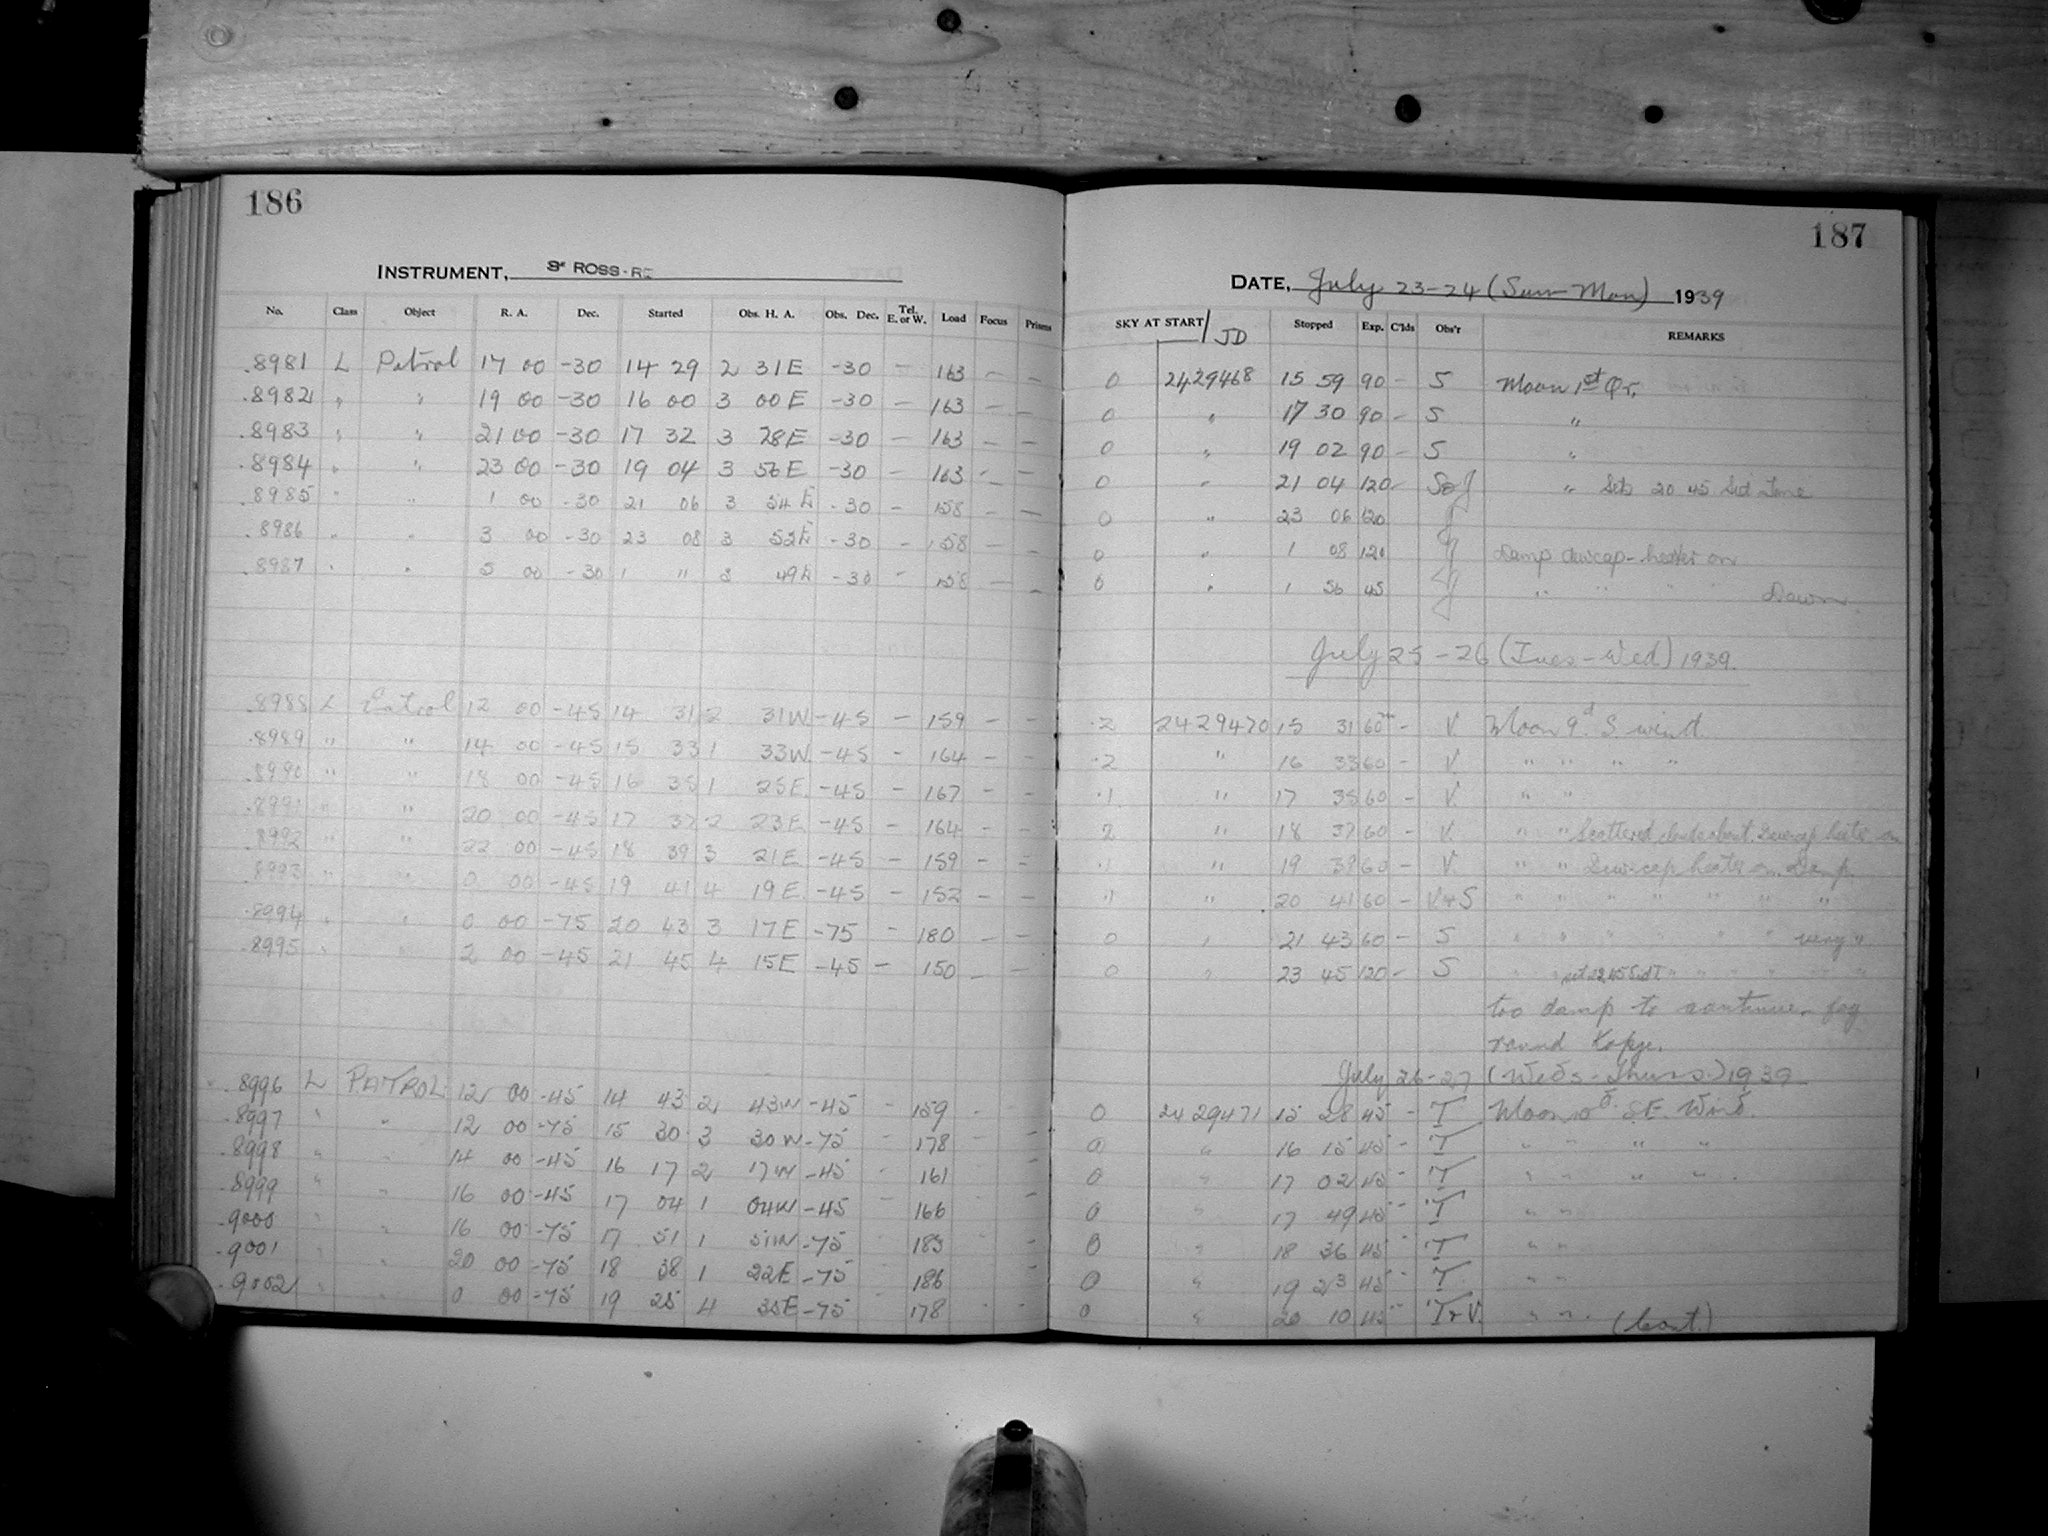 186
INSTRUMENT, 3" ROSS-RE
No. Class Object R. A. Dec. Started Obs. H. A. Obs. Dec. Tel. E. or W. Load Focus Prisms
.8981 L Patrol 17 00 -30 14 29 2 31E -30 — 163 — —
.8982 " " 19 00 -30 16 00 3 00E -30 — 163 — —
.8983 " " 21 00 -30 17 32 3 28E -30 — 163 — —
.8984 " " 23 00 -30 19 04 3 56E -30 — 163 — —
.8985 " " 1 00 -30 21 06 3 54E -30 — 158 — —
.8986 " " 3 00 -30 23 08 3 52E -30 — 158 — —
.8987 " " 5 00 -30 1 " 3 49E -30 — 158 — —
.8988 L Patrol 12 00 -45 14 31 2 31W -45 — 159 — —
.8989 " " 14 00 -45 15 33 1 33W -45 — 164 — —
.8990 " " 18 00 -45 16 35 1 25E -45 — 167 — —
.8991 " " 20 00 -45 17 37 2 23E -45 — 164 — —
.8992 " " 22 00 -45 18 39 3 21E -45 — 159 — —
.8993 " " 0 00 -45 19 41 4 19E -45 — 152 — —
.8994 " " 0 00 -75 20 43 3 17E -75 — 180 — —
.8995 " " 2 00 -45 21 45 4 15E -45 — 150 — —
.8996 L PATROL 12 00 -45 14 43 2 43W -45 — 159 - -
.8997 " " 12 00 -75 15 30 3 30W -75 — 178 - -
.8998 " " 14 00 -45 16 17 2 17W -45 161 -
.8999 " " 16 00 -45 17 04 1 04W -45 - 166 - -
.9000 " " 16 00 -75 17 51 1 51W -75 - 183 - -
.9001 " " 20 00 -75 18 38 1 22E -75 - 186 - -
.9002 " " 0 00 -75 19 25 4 35E -75 - 178 - -
187
DATE, July 23-24 (Sun-Mon) 1939
SKY AT START / JD Stopped Exp. C'lds Obs'r REMARKS
0 2429468 15 59 90 - S Moon 1st Qr.
0 " 17 30 90 - S "
0 " 19 02 90 - S "
0 " 21 04 120 - S&J " Sets 20 45 Sid Time
0 " 23 06 120 J
0 " 1 08 120 J Damp dewcap-heater on
0 " 1 56 45 J " " " " Dawn.
July 25-26 (Tues-Wed) 1939.
.2 2429470 15 31 60 - V. Moon 9d. S. wind.
.2 " 16 33 60 - V. " " " "
.1 " 17 35 60 - V. " "
2 " 18 37 60 - V. " " Scattered clouds about. Dewcap heater on
.1 " 19 39 60 - V. " " Dewcap heater on. Damp.
" " 20 41 60 - V&S " " " " " " "
0 " 21 43 60 - S " " " " " very "
0 " 23 45 120 - S " " set " " " " "
too damp to continue. fog
round Kopje.
July 26-27 (Weds-Thurs.) 1939
0 2429471 15 28 45 - T Moon 10d. S.E. Wind.
0 " 16 15 45 - T " " " "
0 " 17 02 45 - T " " " "
0 " 17 49 45 - T " "
0 " 18 36 45 - T " "
0 " 19 23 45 - T " "
0 " 20 10 45 - T&V. " " (Cont.)